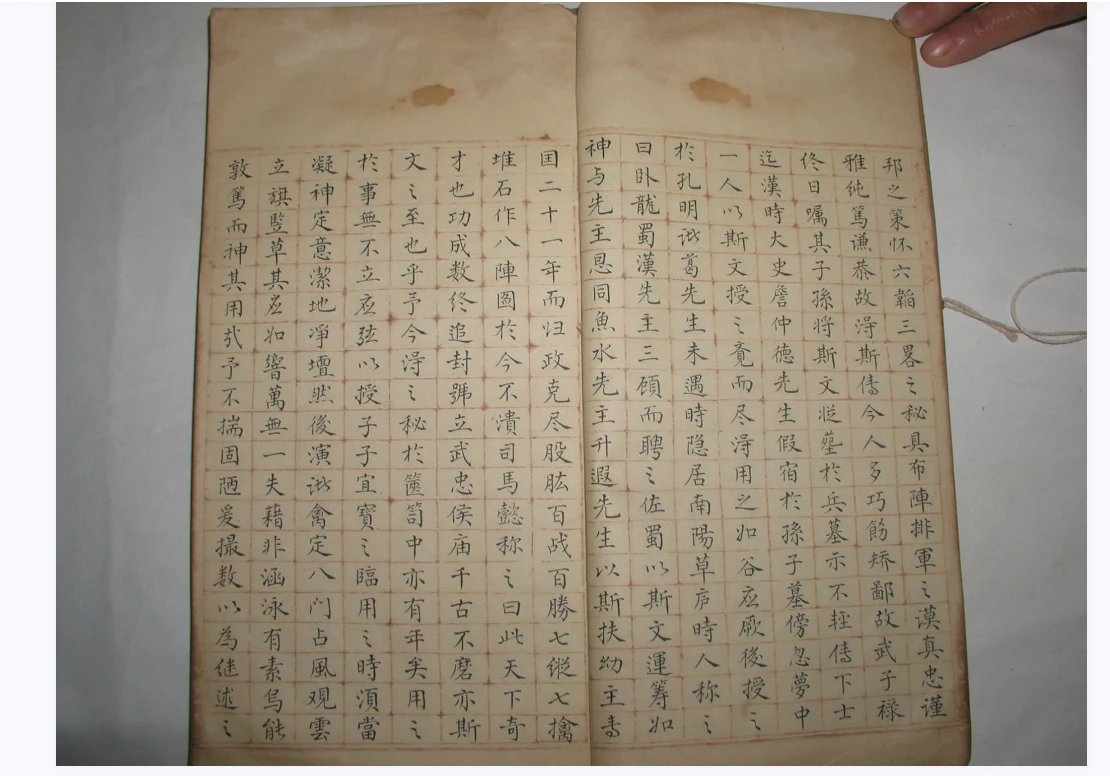 邦之策怀六韜三畧之秘具布陣排軍之漠真忠谨
雅纯篤谦恭故淂斯傳今人多巧餙矫鄙故武子禄
终日嘱其子孫将斯文㷀墓於兵墓示不軽傳下士
迄漢時大史詹仲德先生假宿於孫子墓傍忽夢中
一人以斯文授之竟而尽淂用之如谷应厥後授之
於孔明诸葛先生未遇時隐居南陽草庐時人称之
曰卧龍蜀漢先主三顾而聘之佐蜀以斯文運筹如
神与先主恩同魚水先主升遐先生以斯扶幼主享
国二十一年而归政克尽股肱百战百勝七縱七擒
堆石作八陣图於今不溃司馬懿称之曰此天下奇
才也功成数终追封號立武忠侯庙千古不磨亦斯
文之至也乎予今淂之秘於篋笥中亦有年矣用之
於事無不立应弦以授子子宜寶之臨用之時湏當
凝神定意潔地凈壇然後演诸禽定八门占風观雲
立旗竪草其应如響萬無一失藉非涵泳有素烏能
敦篤而神其用㢤予不揣固陋爰撮数以為继述之